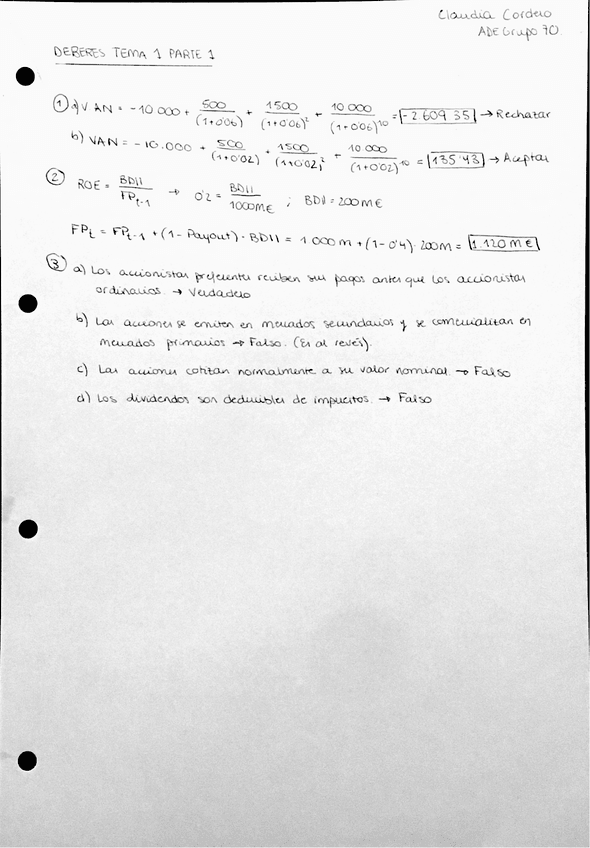 Claudia Cordero
ADE Grupo 70.
DEBERES TEMA 1 PARTE 1
① a) VAN = -10 000 + 500/(1+0'06) + 1500/(1+0'06)² + 10 000/(1+0'06)¹⁰ = -2 609 35 → Rechazar
b) VAN = -10.000 + 500/(1+0'02) + 1500/(1+0'02)² + 10 000/(1+0'02)¹⁰ = 135'43 → Aceptar
② ROE = BDII/FPt-1 → 0'2 = BDII/1000M€ ; BDI = 200M€
FPt = FPt-1 + (1 - Payout) · BDII = 1 000 m + (1-0'4) · 200m = 1.120 M€
③ a) Los accionistas preferentes reciben sus pagos antes que los accionistas
ordinarios. → Verdadero
b) Las acciones se emiten en mercados secundarios y se comercializan en
mercados primarios → Falso. (Es al revés).
c) Las acciones cotizan normalmente a su valor nominal. → Falso
d) Los dividendos son deducibles de impuestos. → Falso